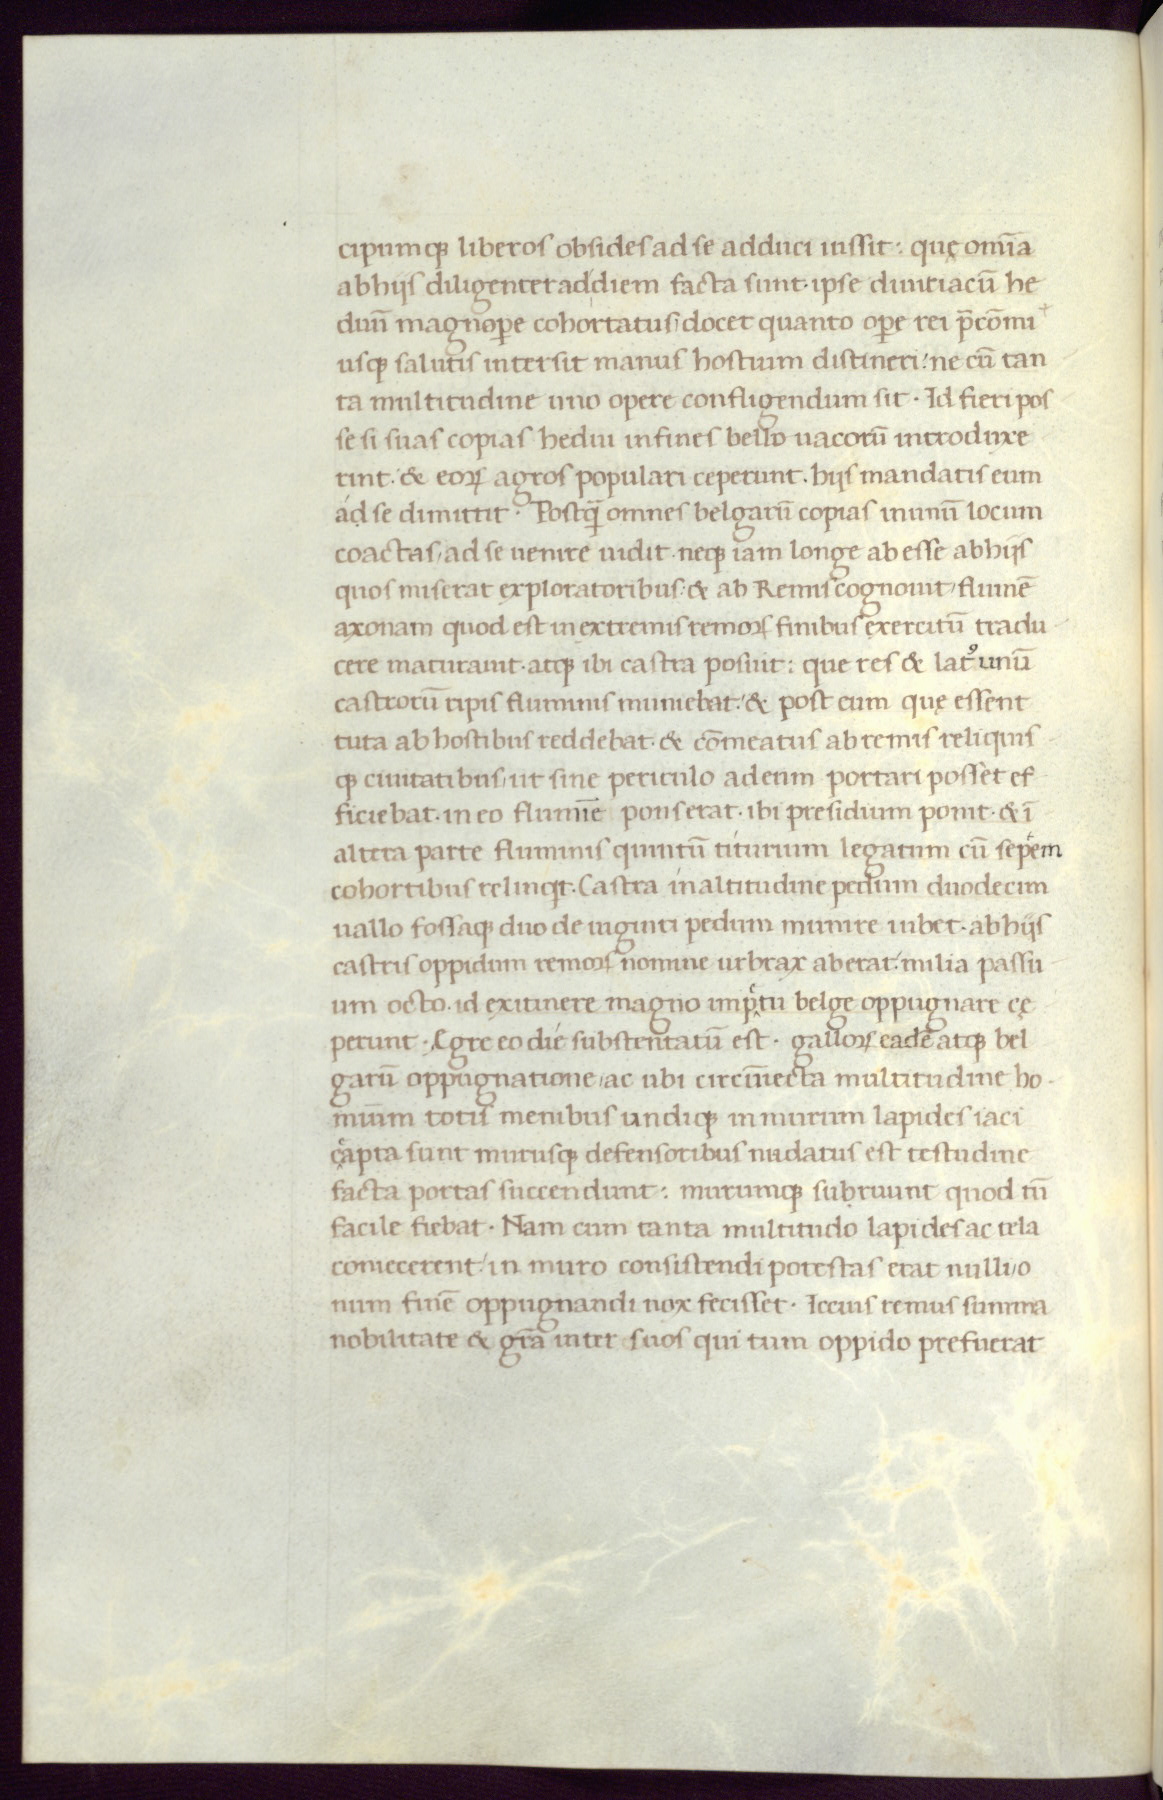 cipumq; liberos obsides ad se adduci iussit: quę om̄ia
ab hijs diligenter ad diem facta sunt. ipse diuitiacū he
duū magnop̄e cohortatus docet quanto op̄e rei p̄cōmi
usq; salutis intersit manus hostium distineri: ne cū tan
ta multitudine uno opere confligendum sit. Id fieri pos
se si suas copias hedui in fines bello uacorū introduxe
rint. & eoꝝ agros populari ceperunt. hijs mandatis eum
ad se dimittit. Postq̄ omnes belgarū copias in unū locum
coactas, ad se uenire uidit. neq; iam longe ab esse ab hijs
quos miserat exploratoribus: & ab Remis cognouit, flumē
axonam quod est in extremis remoꝝ finibus exercitū tradu
cere maturauit. atq; ibi castra posuit: que res & latꝰ unū
castrorū ripis fluminis muniebat: & post eum quę essent
tuta ab hostibus reddebat. & cōmeatus ab remis reliquis
q; ciuitatibus, ut sine periculo ad eum portari posset ef
ficiebat. in eo flumīe pons erat. ibi presidium ponit. & ī
altera parte fluminis quintū titurium legatum cū sepẽm
cohortibus relinqt. Castra in altitudine pedum duodecim
uallo fossaq; duo de uiginti pedum munire iubet. ab hijs
castris oppidum remoꝝ nomine urbrax aberat: milia passu
um octo. id ex itinere magno imp̃tu belge oppugnare cę
perunt. Egre eo die substentatū est. galloꝝ eadē atq; bel
garū oppugnatione, ac ubi circūiecta multitudine ho
minum totis menibus undiq; in murum lapides iaci
cępta sunt murusq; defensoribus nudatus est testudine
facta portas succendunt: murumq; subruunt quod tū
facile fiebat. Nam cum tanta multitudo lapides ac tela
coniecerent: in muro consistendi potestas erat nulli, o
num finē oppugnandi nox fecisset. Iccius remus summa
nobilitate & gr̄a inter suos qui tum oppido prefuerat